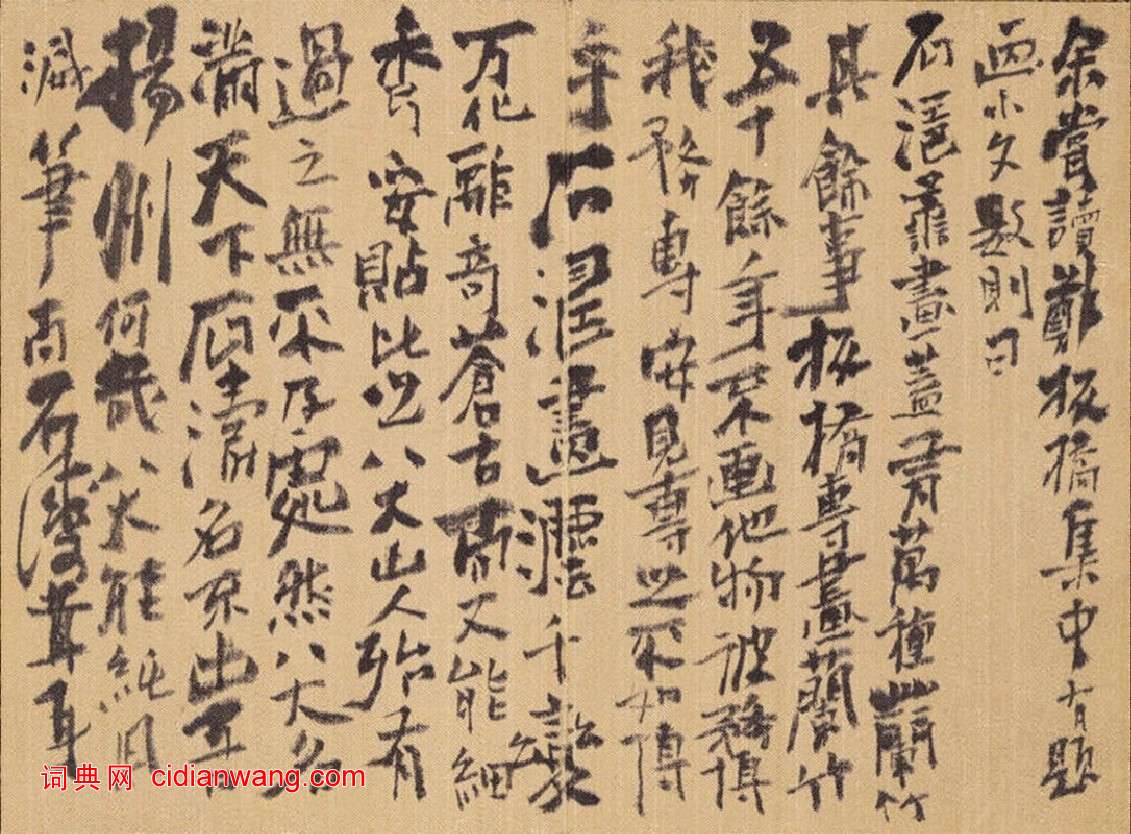 余嘗讀鄭板橋集中有題
画小文數則曰
石濤善畫蓋有萬種蘭竹
其餘事板橋專畫蘭竹
五十餘年不画他物彼務博
我務專安見專之不如博
乎石濤畫法千變
万化離奇蒼古而又能細
秀安貼比之八大山人殆有
過之無不及處然八大名
滿天下石濤名不出吾
揚州何哉八大能純用
減筆而石濤微茸耳
词典网 cidianwang.com